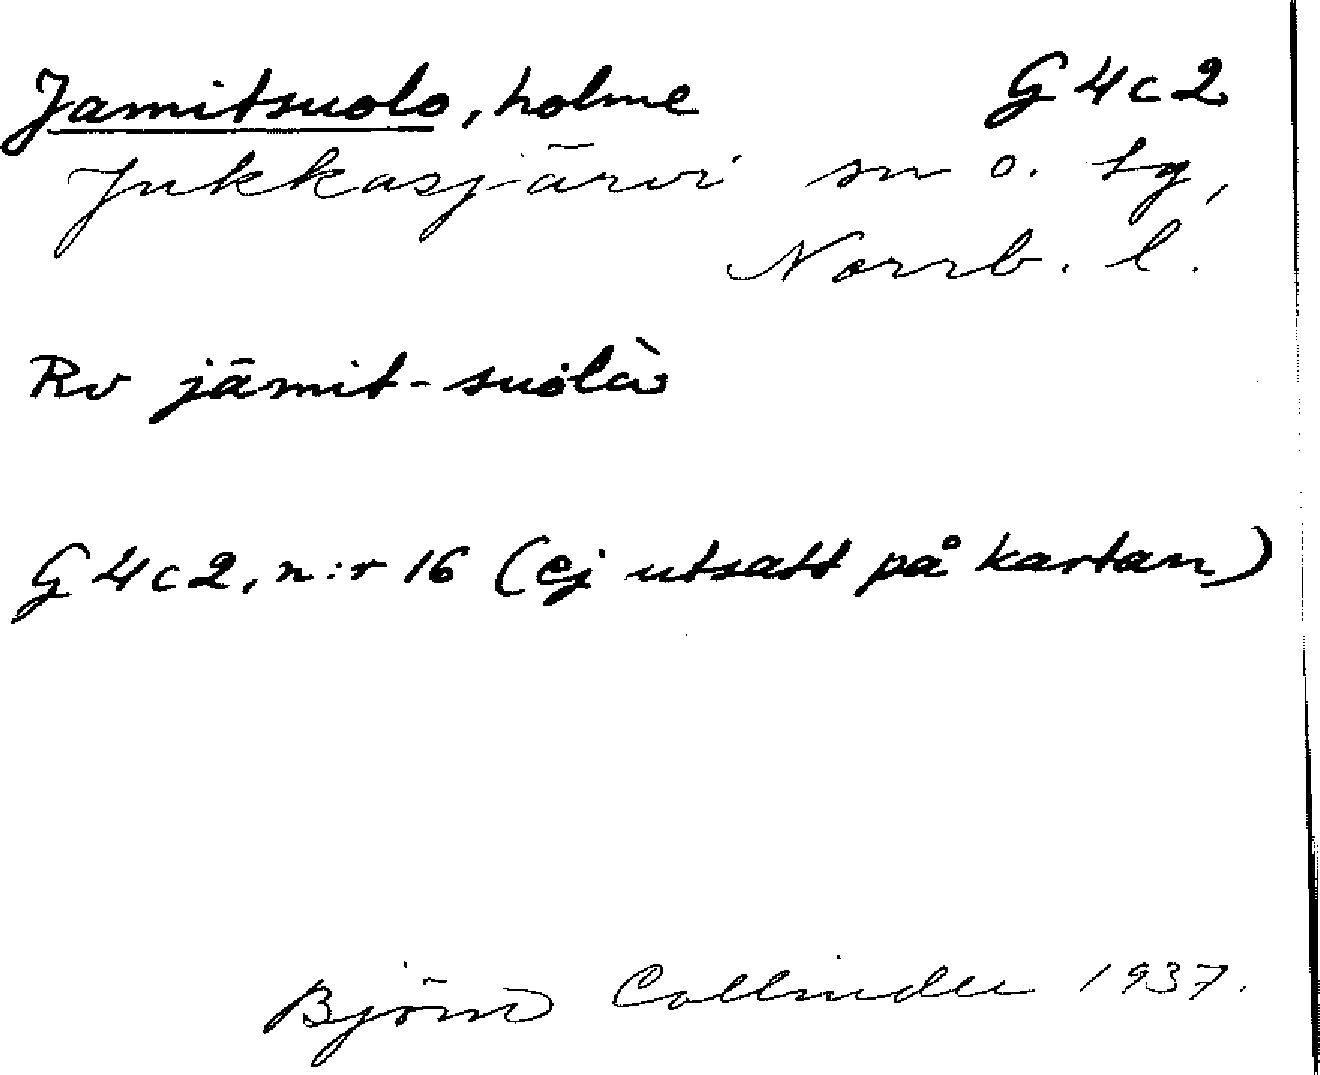 Jamitsuolo, holme G4c2
Jukkasjärvi sn o. tg,
Norrb. l.
Rv jāmit-suolò
G4c2, n:r 16 (ej utsatt på kartan)
Björn Collinder 1937.